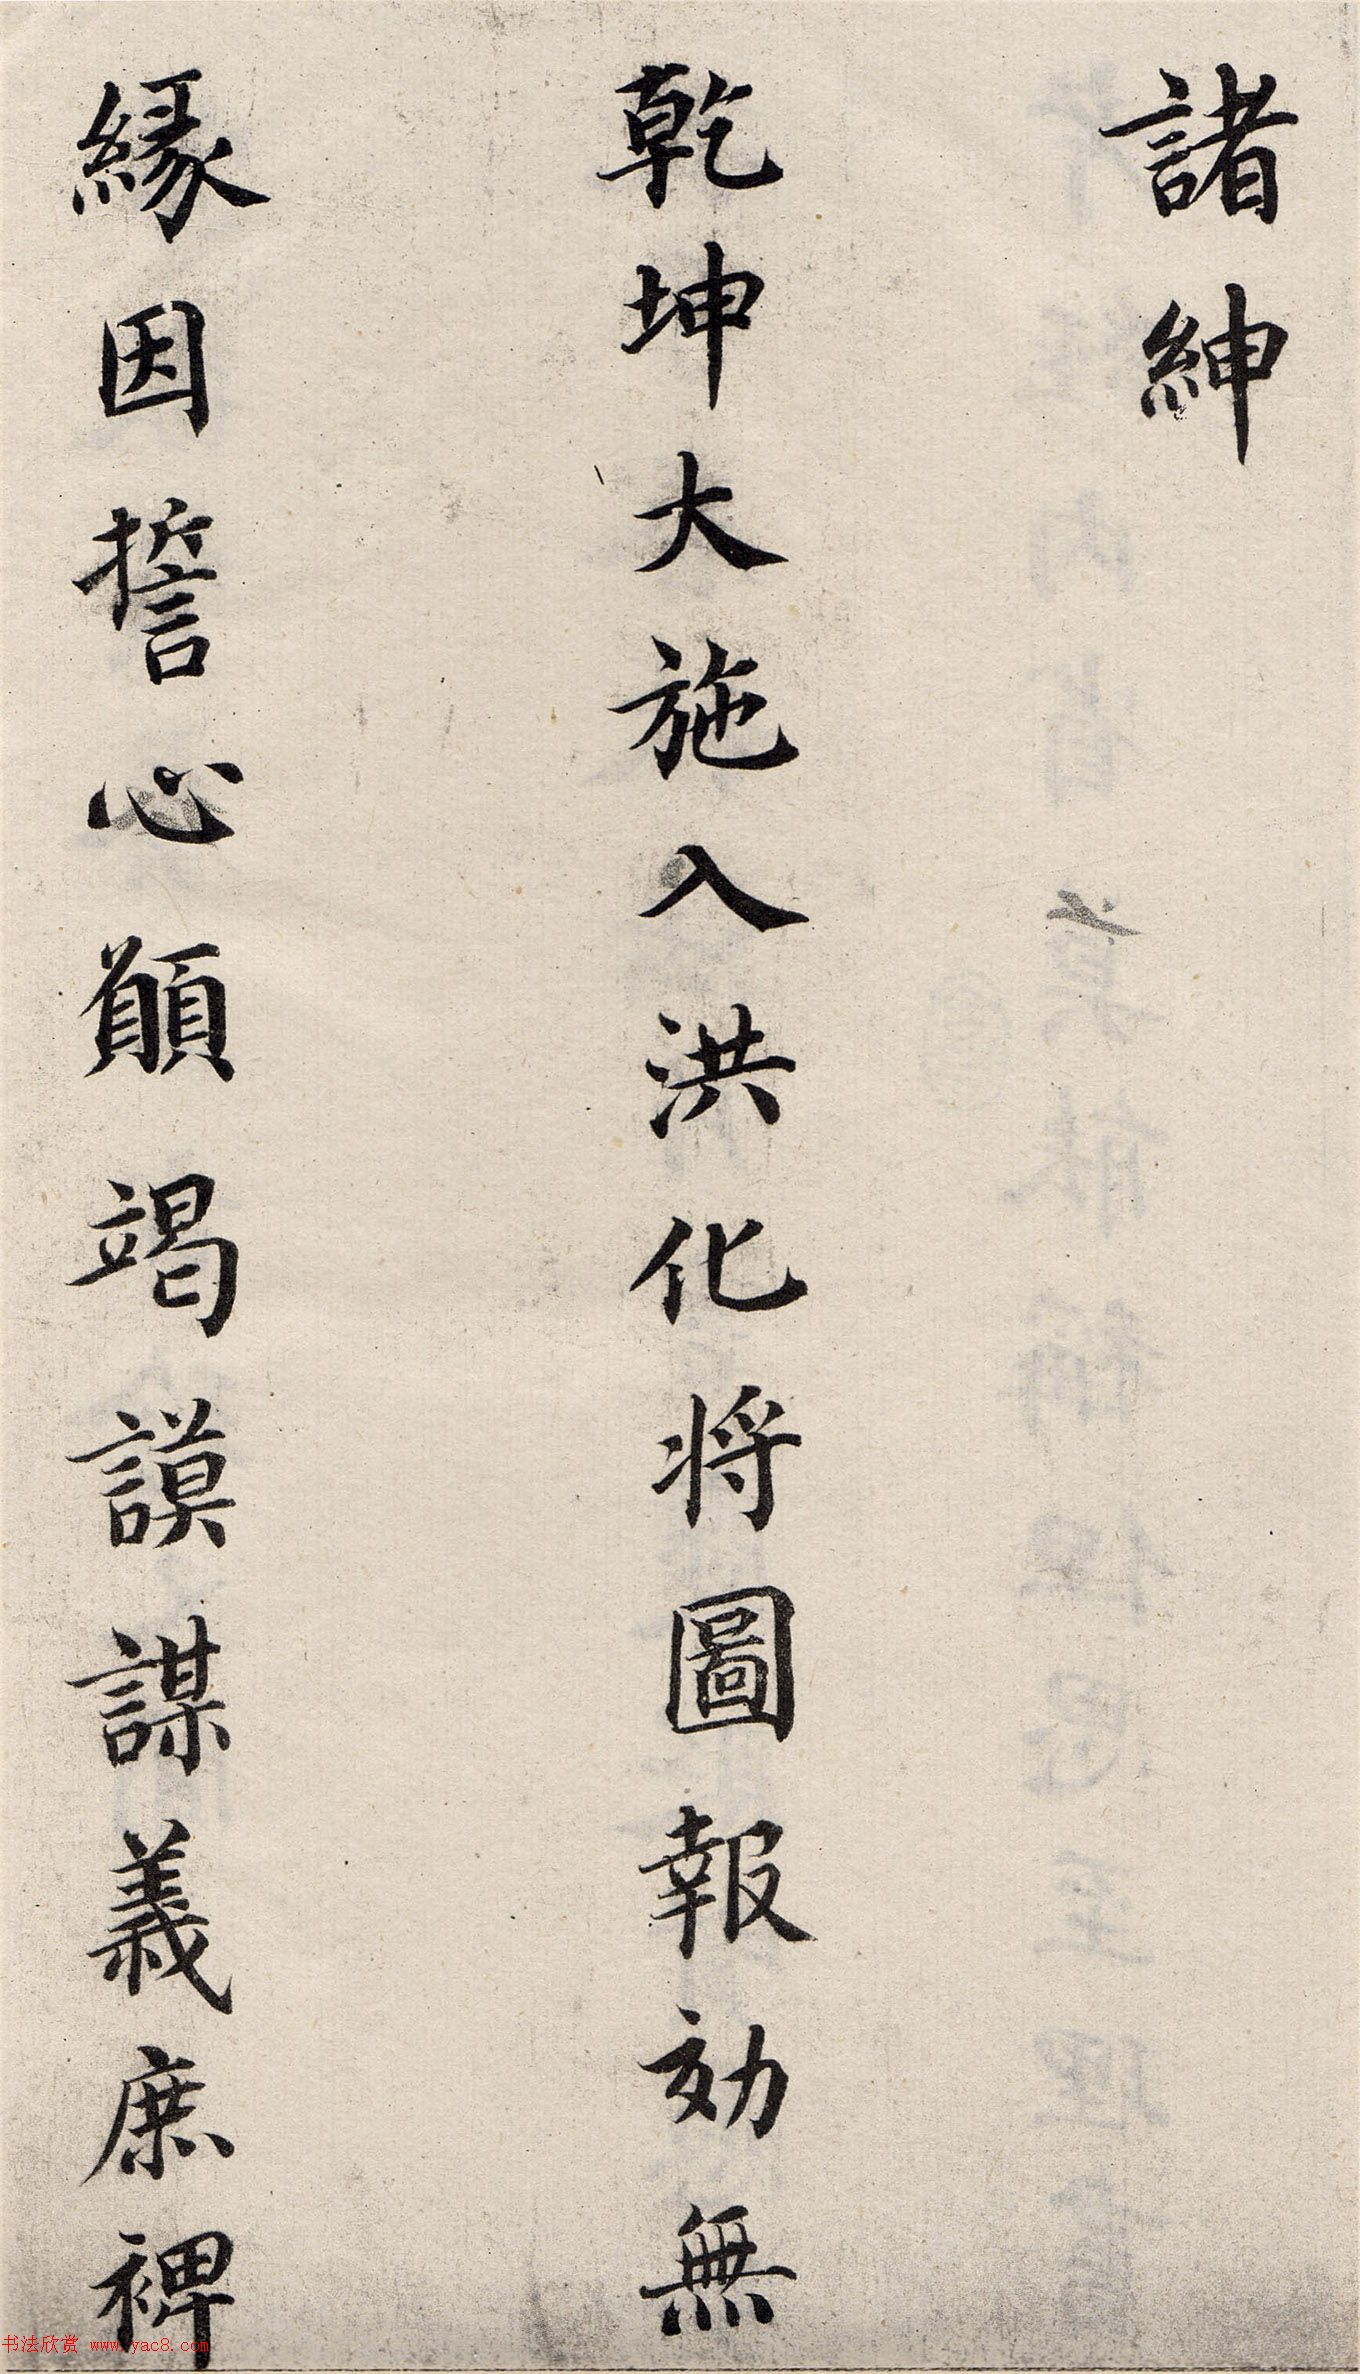 諸紳
乾坤大施入洪化将圖報効無
緣因誓心願竭謨謀義庶裨
书法欣赏 www.yac8.com